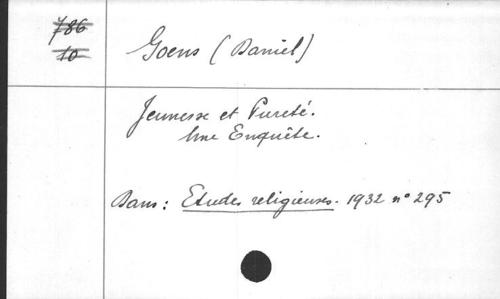 786
10
Goens (Daniel)
Jeunesse et Pureté.
Une Enquête.
Dans: Etudes religieuses. 1932 n° 295